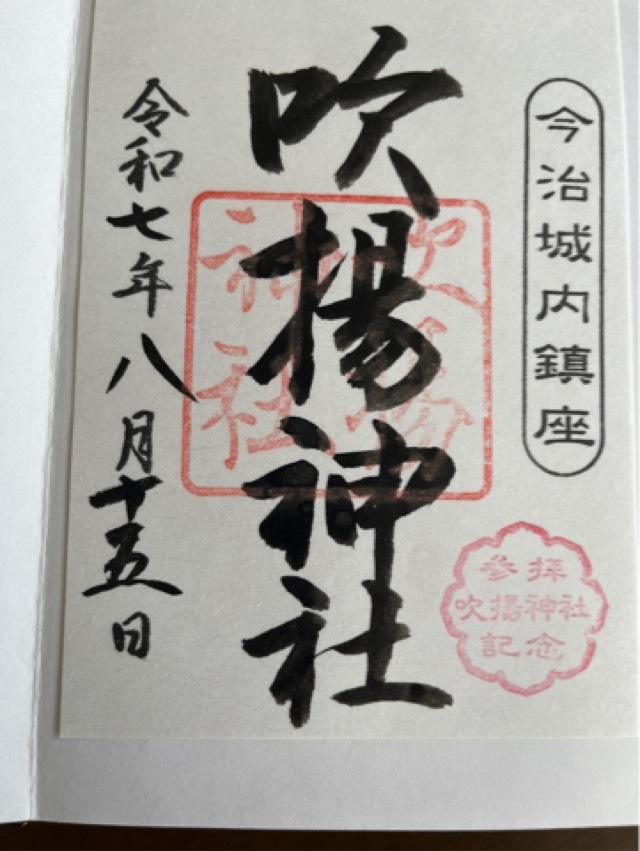 今治城内鎮座
吹揚神社
吹揚
神社
参拝
吹揚神社
記念
令和七年八月十五日